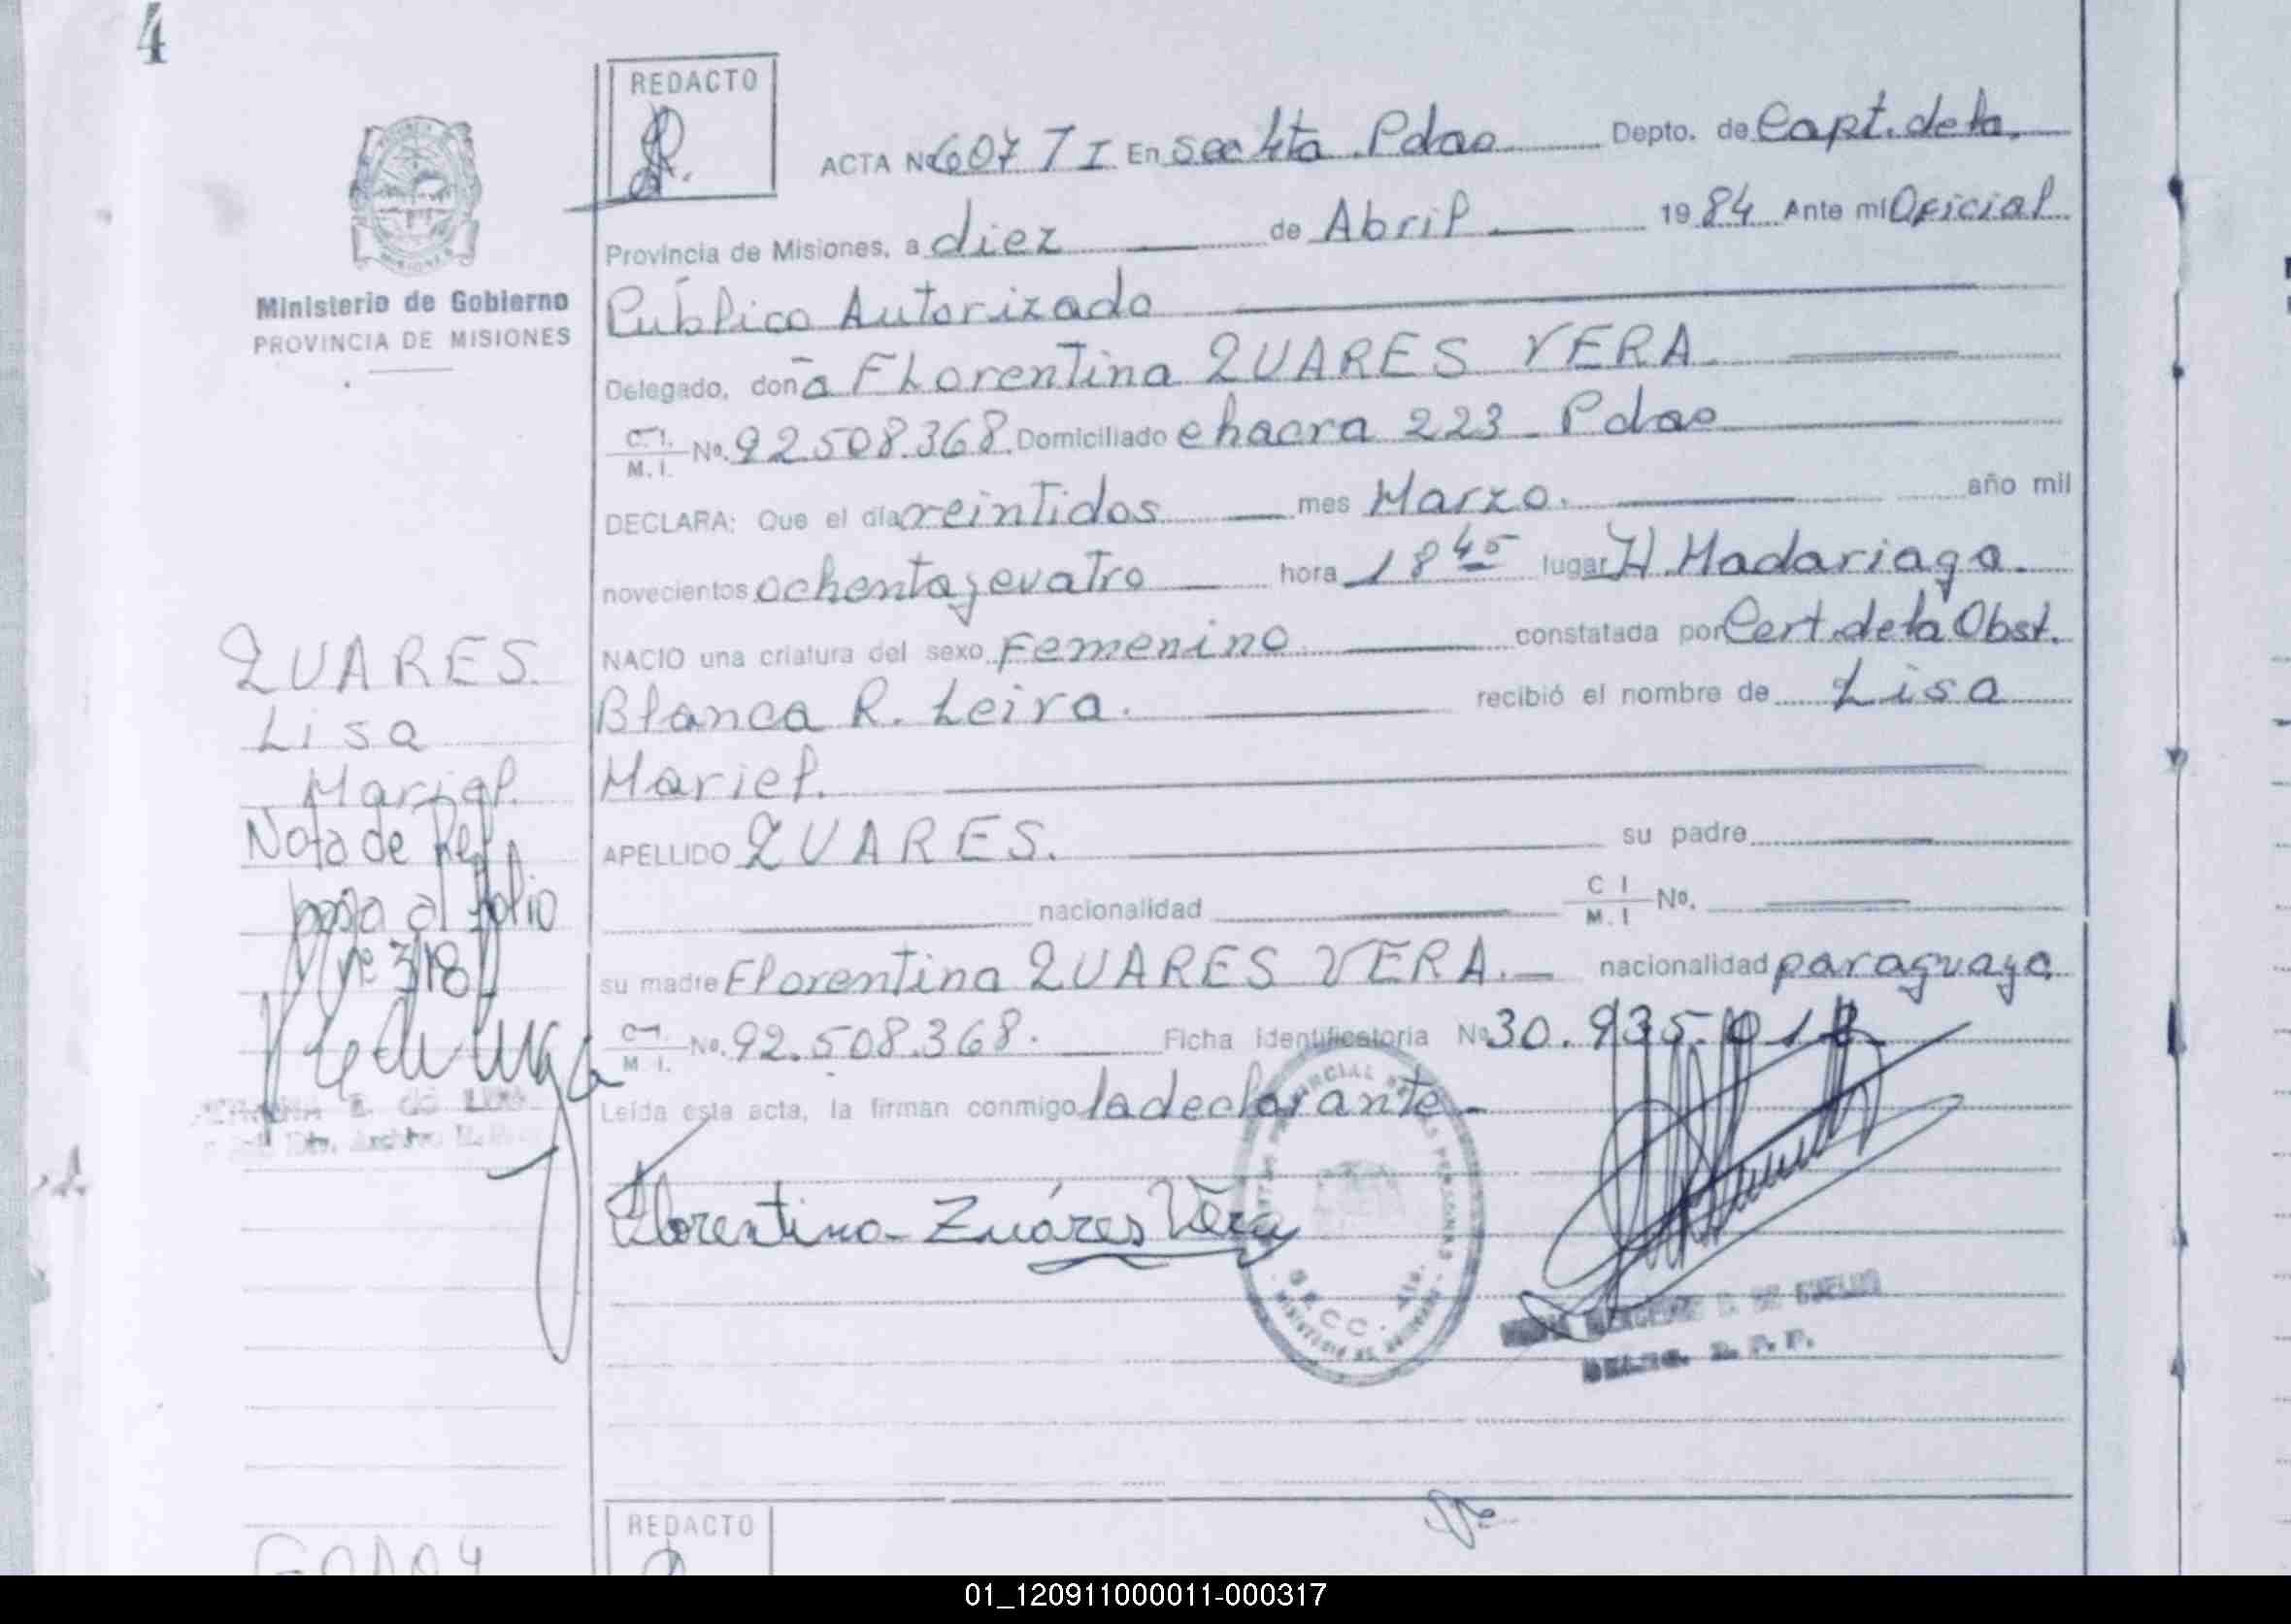 4
REDACTO
ACTA Nº 607 T I En Secc 4ta Pdas Depto. de Capt. de la.
Provincia de Misiones, a diez de Abril 1984 Ante mi Oficial
Ministerio de Gobierno
PROVINCIA DE MISIONES
Público Autorizado
Delegado, doña Florentina ZUARES VERA.
C.I. M.I. Nº. 92.508.368. Domiciliado chacra 223 Pdas
DECLARA: Que el día veintidos mes Marzo. año mil
novecientos ochenta y cuatro hora 18 45 lugar H. Madariaga.
NACIO una criatura del sexo Femenino. constatada por Cert. de la Obst.
Blanca R. Leiva. recibió el nombre de Lisa
Mariel.
APELLIDO ZUARES. su padre
nacionalidad C I M. I Nº.
su madre Florentina ZUARES VERA. nacionalidad paraguaya
C.I. M.I. Nº. 92.508.368. Ficha identificatoria Nº 30.935.01
Leída esta acta, la firman conmigo la declarante
Florentina Zuáres Vera
ZUARES.
Lisa
Mariel.
Nota de Ref
pasa al folio
Nº 318
SECC. 4ta.
REDACTO
GODOY
01_120911000011-000317